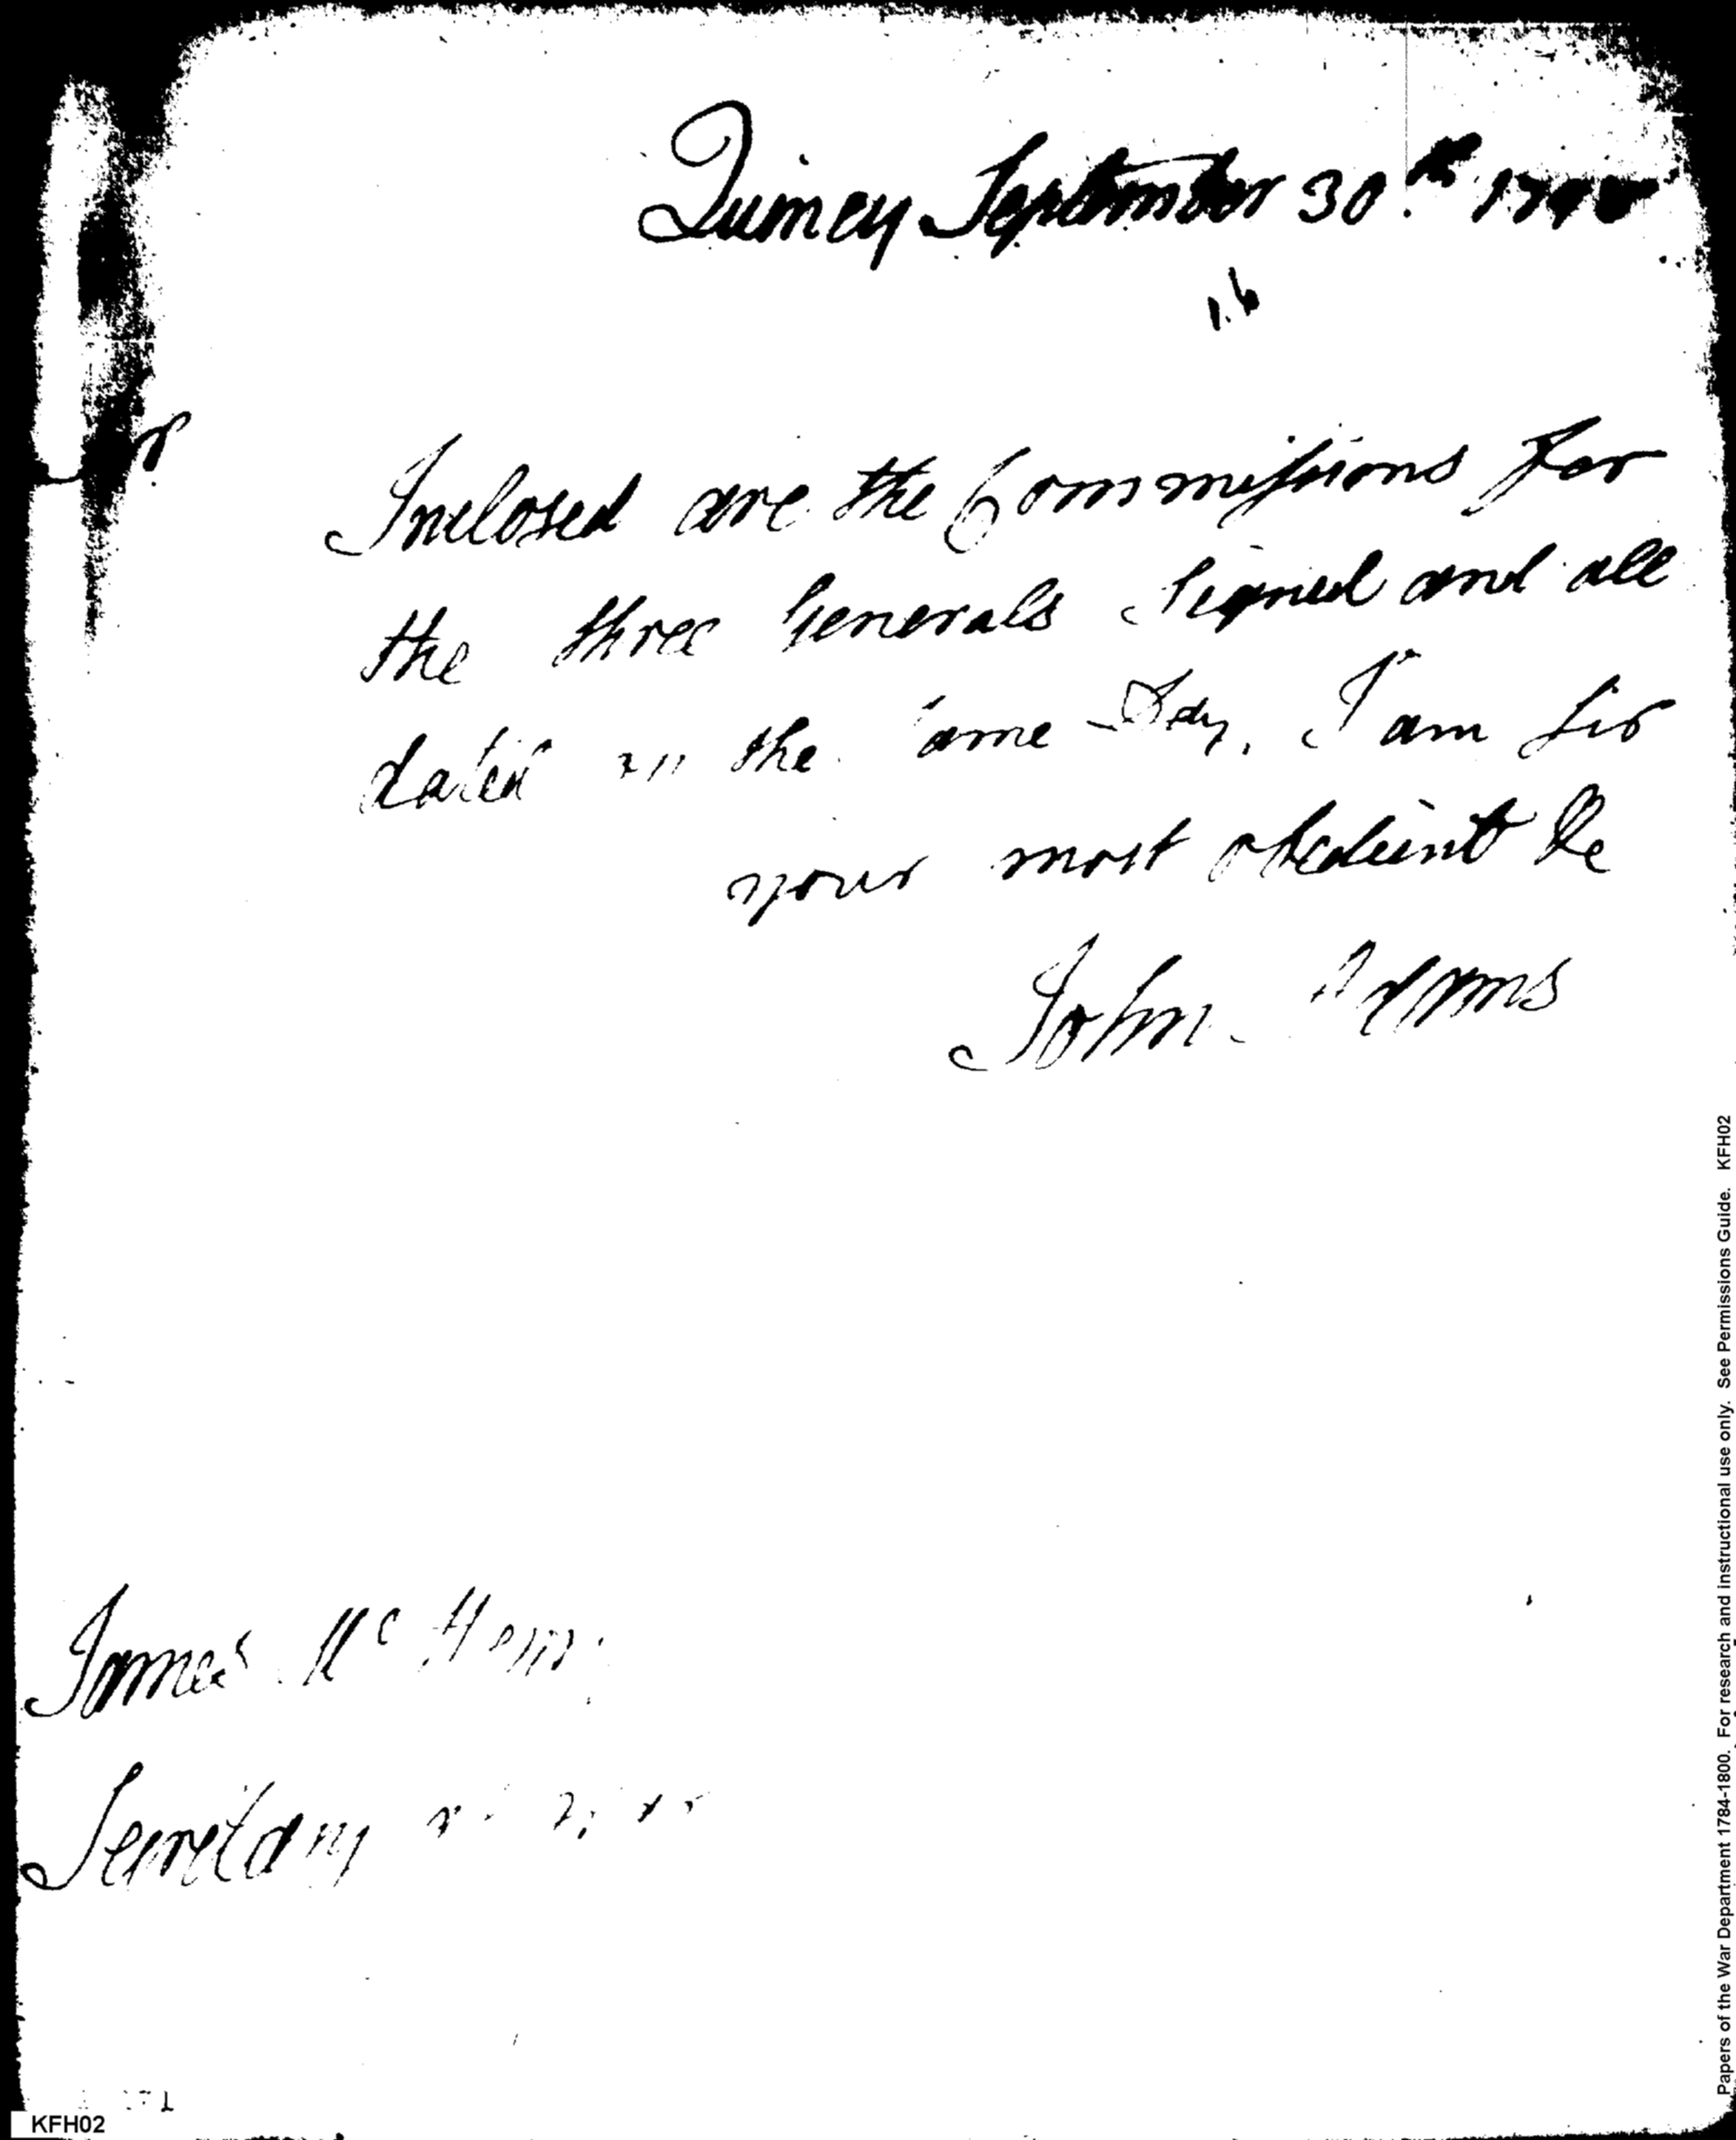 Quincy September 30.th 1798
Inclosed are the Commissions for
the three Generals Signed and all
dated on the same Day. I am Sir
your most obedient &c
John Adams
James McHenry
Secretary of War
KFH02
Papers of the War Department 1784-1800. For research and instructional use only. See Permissions Guide. KFH02